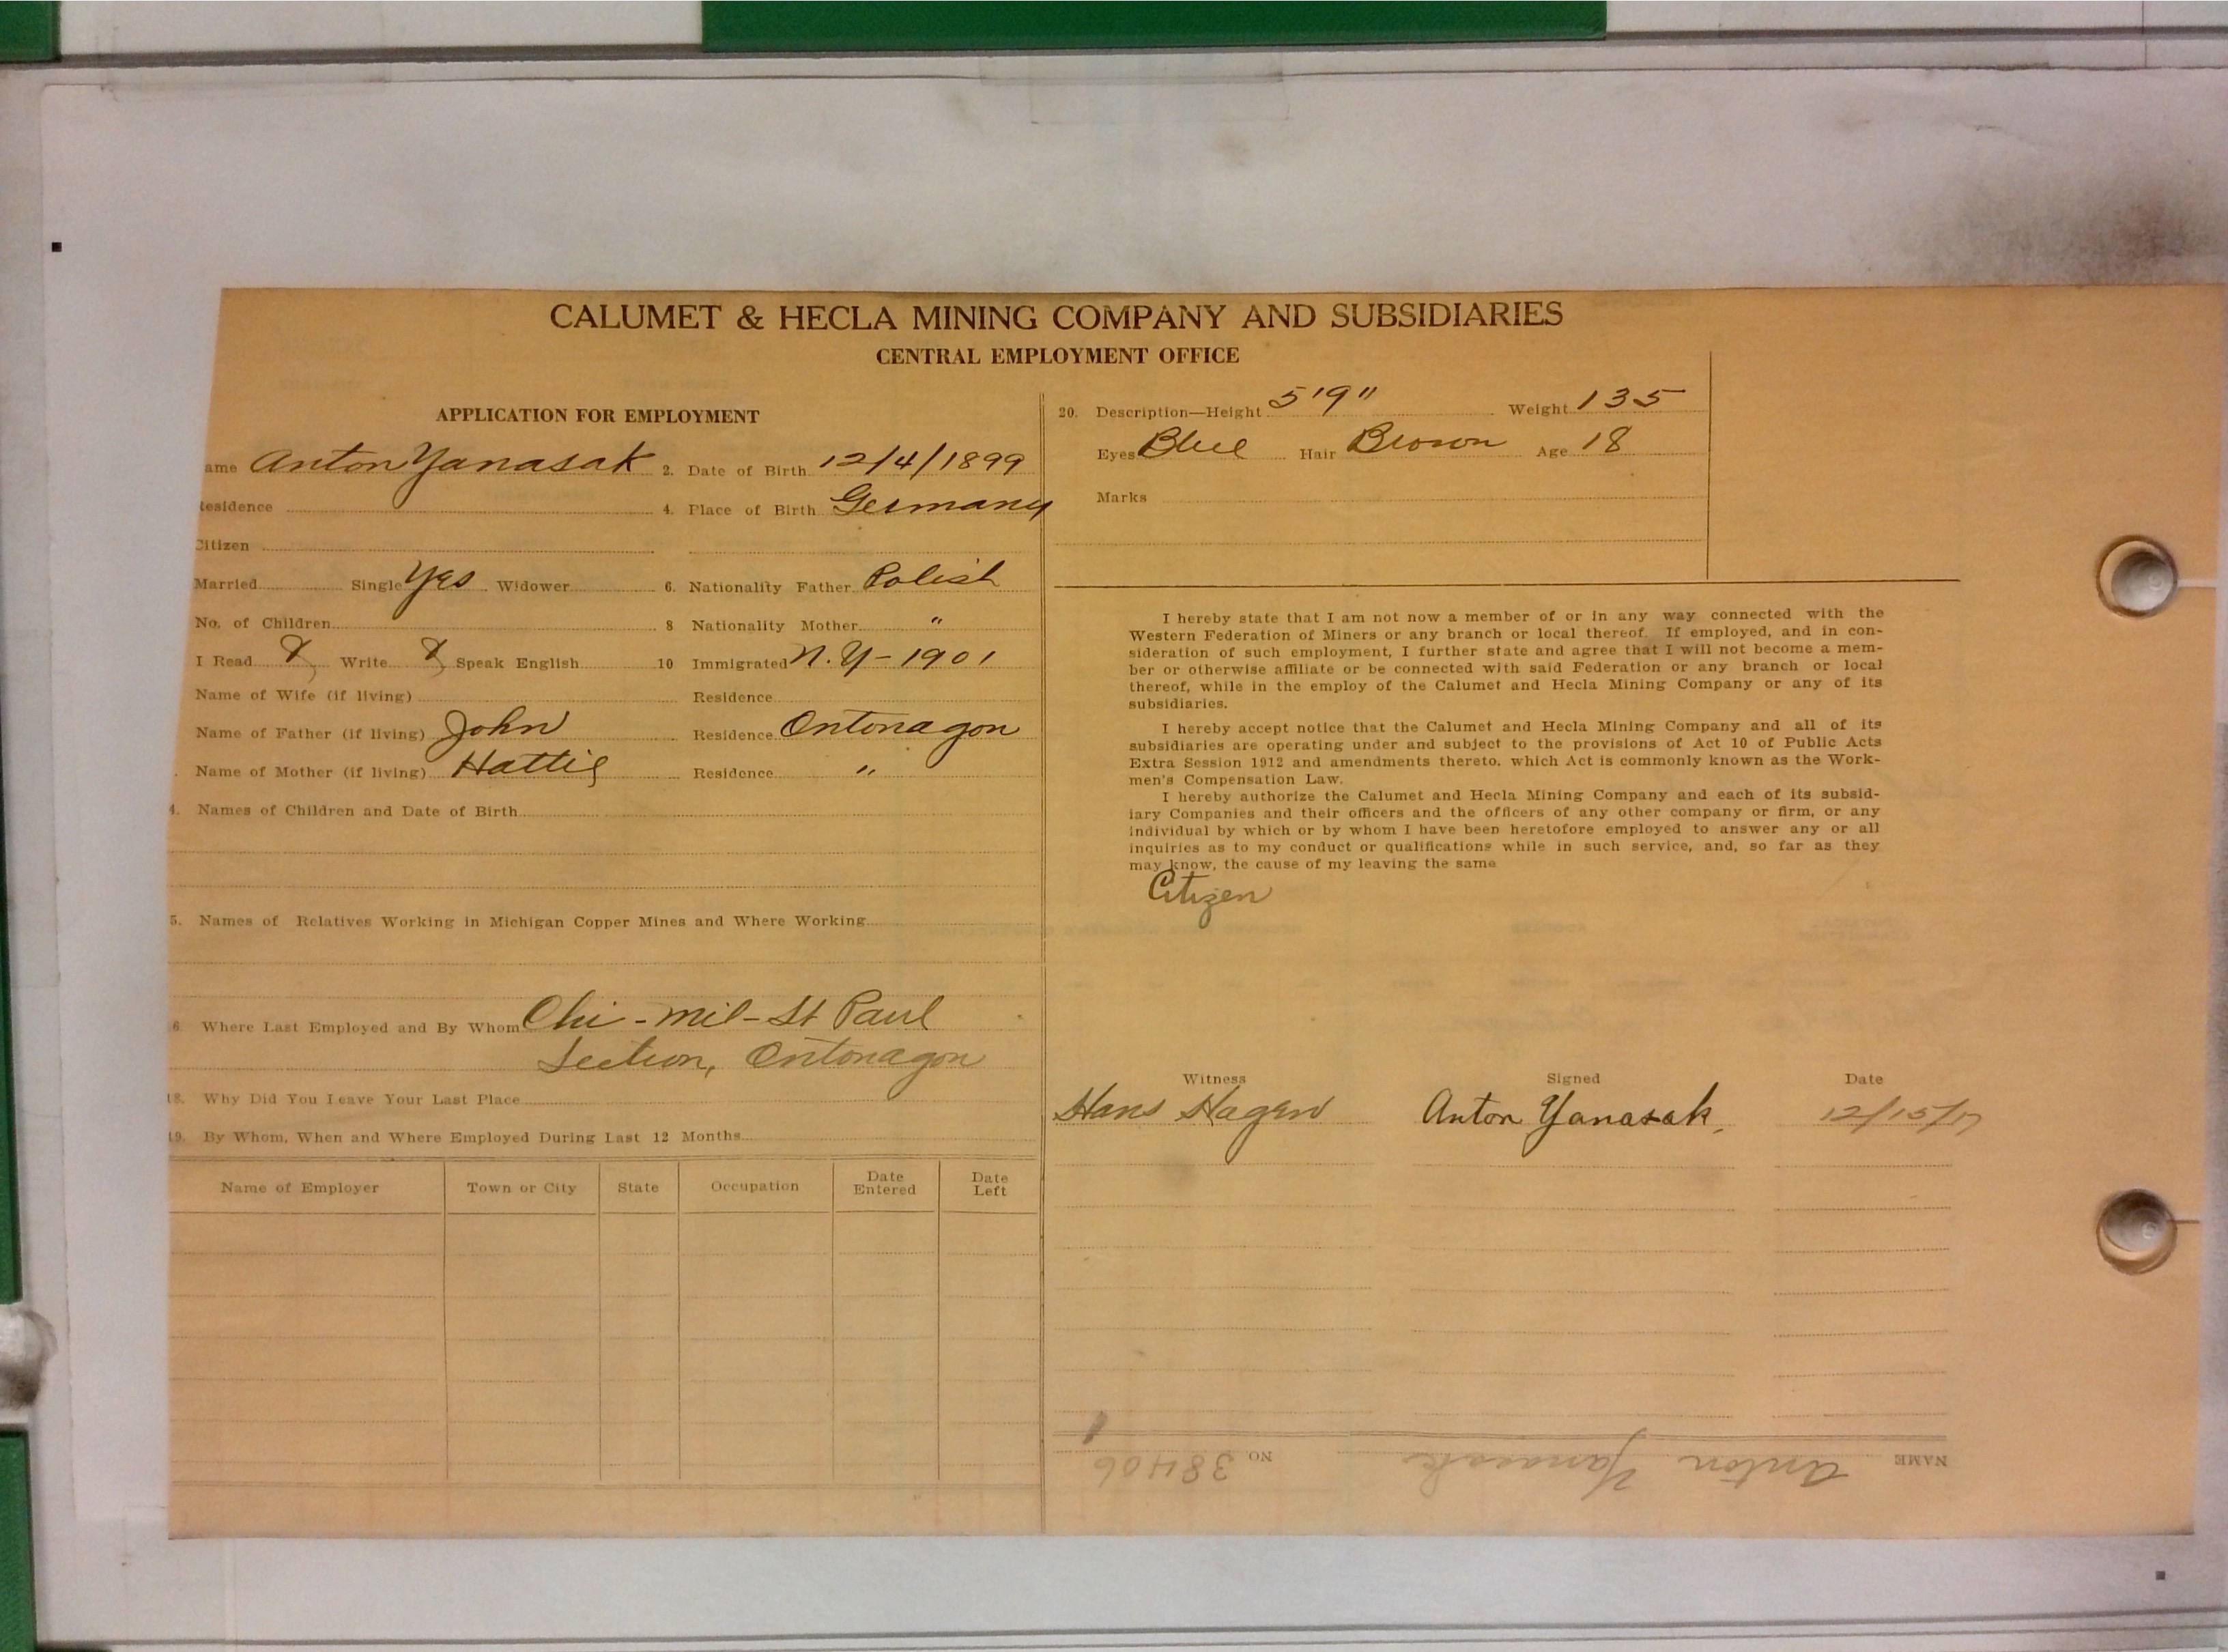 CALUMET & HECLA MINING COMPANY AND SUBSIDIARIES
CENTRAL EMPLOYMENT OFFICE
APPLICATION FOR EMPLOYMENT
ame Anton Yanasak 2. Date of Birth 12/4/1899
Residence 4. Place of Birth Germany
Citizen
Married Single Yes Widower 6. Nationality Father Polish
No. of Children 8 Nationality Mother "
I Read Write Speak English 10 Immigrated N.Y-1901
Name of Wife (if living) Residence
Name of Father (if living) John Residence Ontonagon
Name of Mother (if living) Hattie Residence "
4. Names of Children and Date of Birth
5. Names of Relatives Working in Michigan Copper Mines and Where Working
6. Where Last Employed and By Whom Chi-Mil-St Paul
Section, Ontonagon
18. Why Did You Leave Your Last Place
19. By Whom, When and Where Employed During Last 12 Months
Name of Employer Town or City State Occupation Date Entered Date Left
20. Description—Height 5'9" Weight 135
Eyes Blue Hair Brown Age 18
Marks
I hereby state that I am not now a member of or in any way connected with the
Western Federation of Miners or any branch or local thereof. If employed, and in con-
sideration of such employment, I further state and agree that I will not become a mem-
ber or otherwise affiliate or be connected with said Federation or any branch or local
thereof, while in the employ of the Calumet and Hecla Mining Company or any of its
subsidiaries.
I hereby accept notice that the Calumet and Hecla Mining Company and all of its
subsidiaries are operating under and subject to the provisions of Act 10 of Public Acts
Extra Session 1912 and amendments thereto, which Act is commonly known as the Work-
men's Compensation Law.
I hereby authorize the Calumet and Hecla Mining Company and each of its subsid-
iary Companies and their officers and the officers of any other company or firm, or any
individual by which or by whom I have been heretofore employed to answer any or all
inquiries as to my conduct or qualifications while in such service, and, so far as they
may know, the cause of my leaving the same
Citizen
Witness Signed Date
Hans Hagen Anton Yanasak. 12/15/17
NAME Anton Yanasak NO 38406